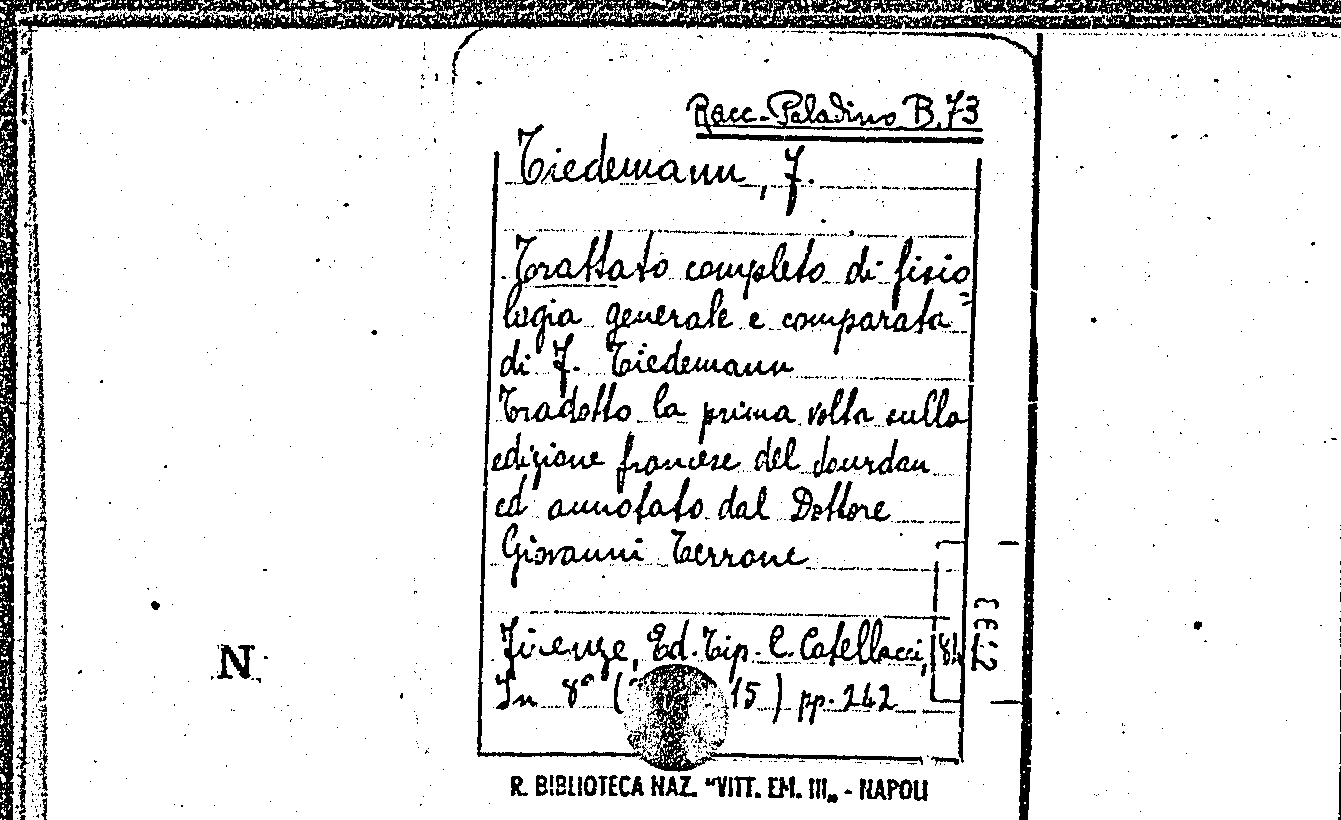 Racc. Paladino B. 73
Tiedemann, F.
Trattato completo di fisio
logia generale e comparata
di F. Tiedemann
Tradotto la prima volta sulla
edizione francese del Jourdan
ed annotato dal Dottore
Giovanni Terrone
Firenze, Ed. Tip. C. Catellacci,
In 8° ( 15 ) pp. 242
N
R. BIBLIOTECA NAZ. "VITT. EM. III„ - NAPOLI